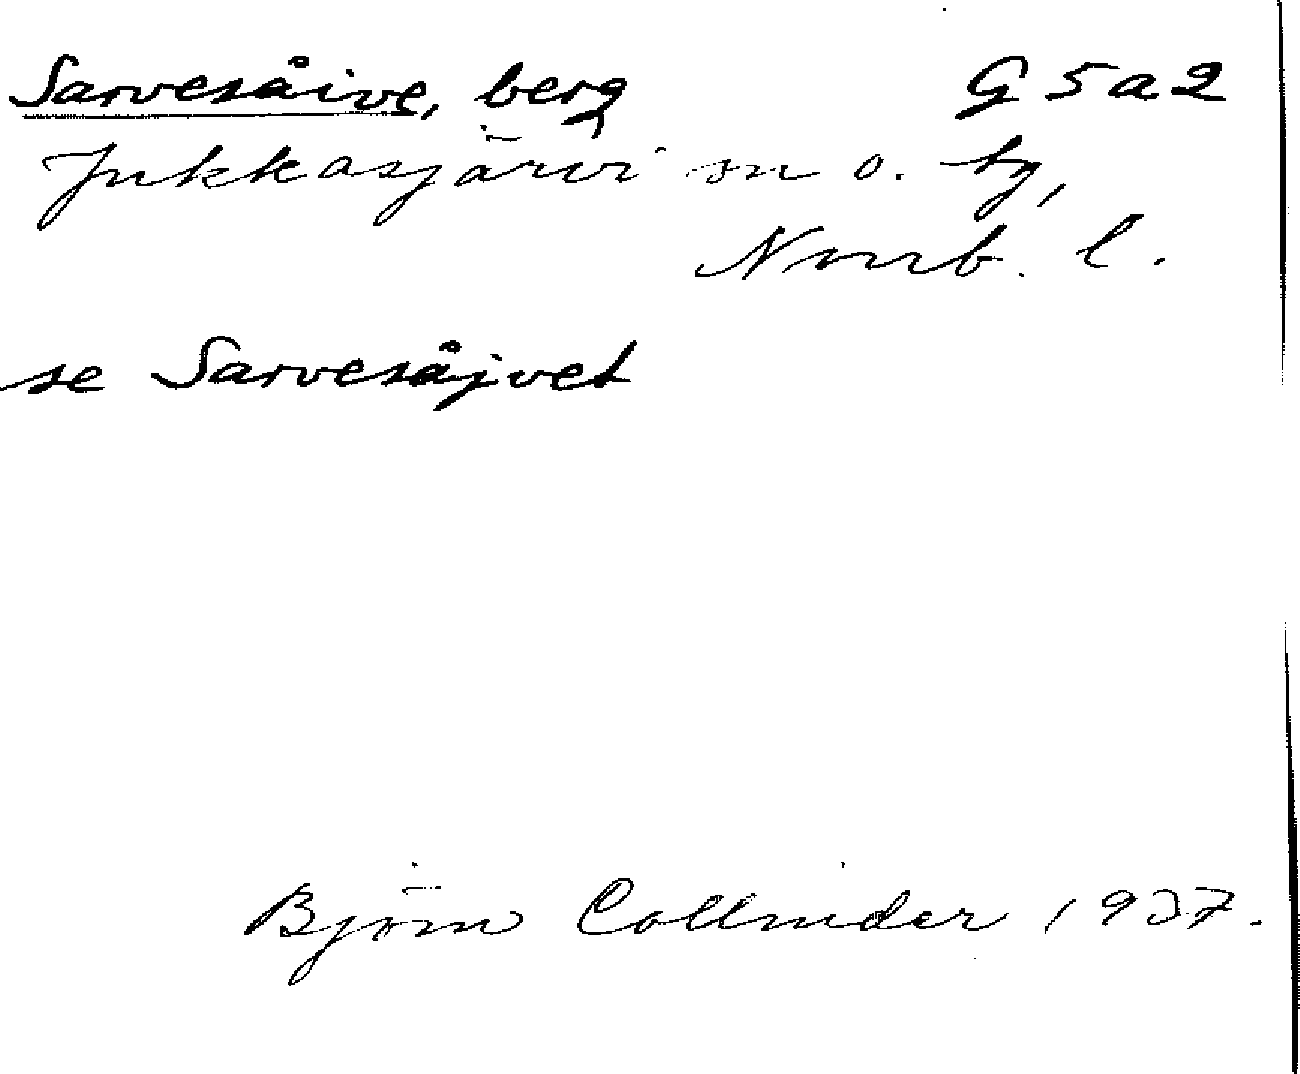 Sarvesåive, berg G 5 a 2
Jukkasjärvi sn o. tg,
Norrb. l.
se Sarvesåjvet
Björn Collinder 1937.